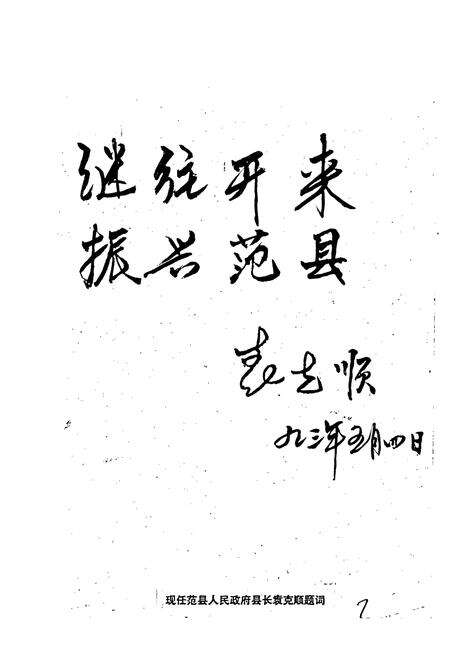 继往开来
振兴范县
袁克顺
九三年五月四日
现任范县人民政府县长袁克顺题词
7